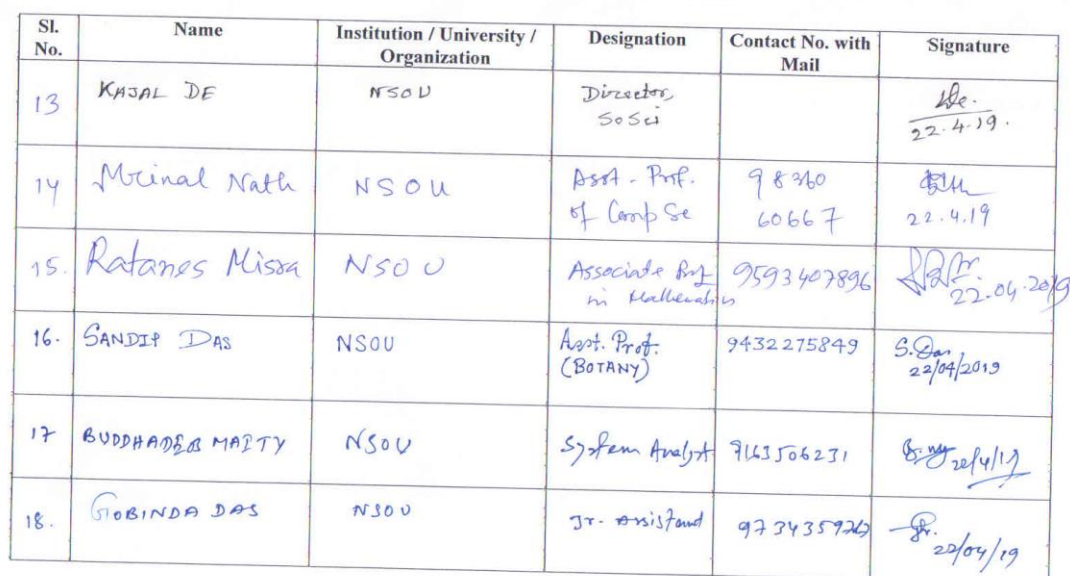 Sl. No. Name Institution / University / Organization Designation Contact No. with Mail Signature
13 KAJAL DE NSOU Director, SoSci De. 22.4.19.
14 Mrinal Nath NSOU Asst. Prof. of Comp Sc 98360 60667 22.4.19
15. Ratanes Misra NSOU Associate Prof in Mathematics 9593407896 22.04.2019
16. SANDIP DAS NSOU Asst. Prof. (BOTANY) 9432275849 S. Das 22/04/2019
17 BUDDHADEB MAITY NSOU System Analyst 9163506231 22/4/19
18. GOBINDA DAS NSOU Jr. Assistant 22/04/19